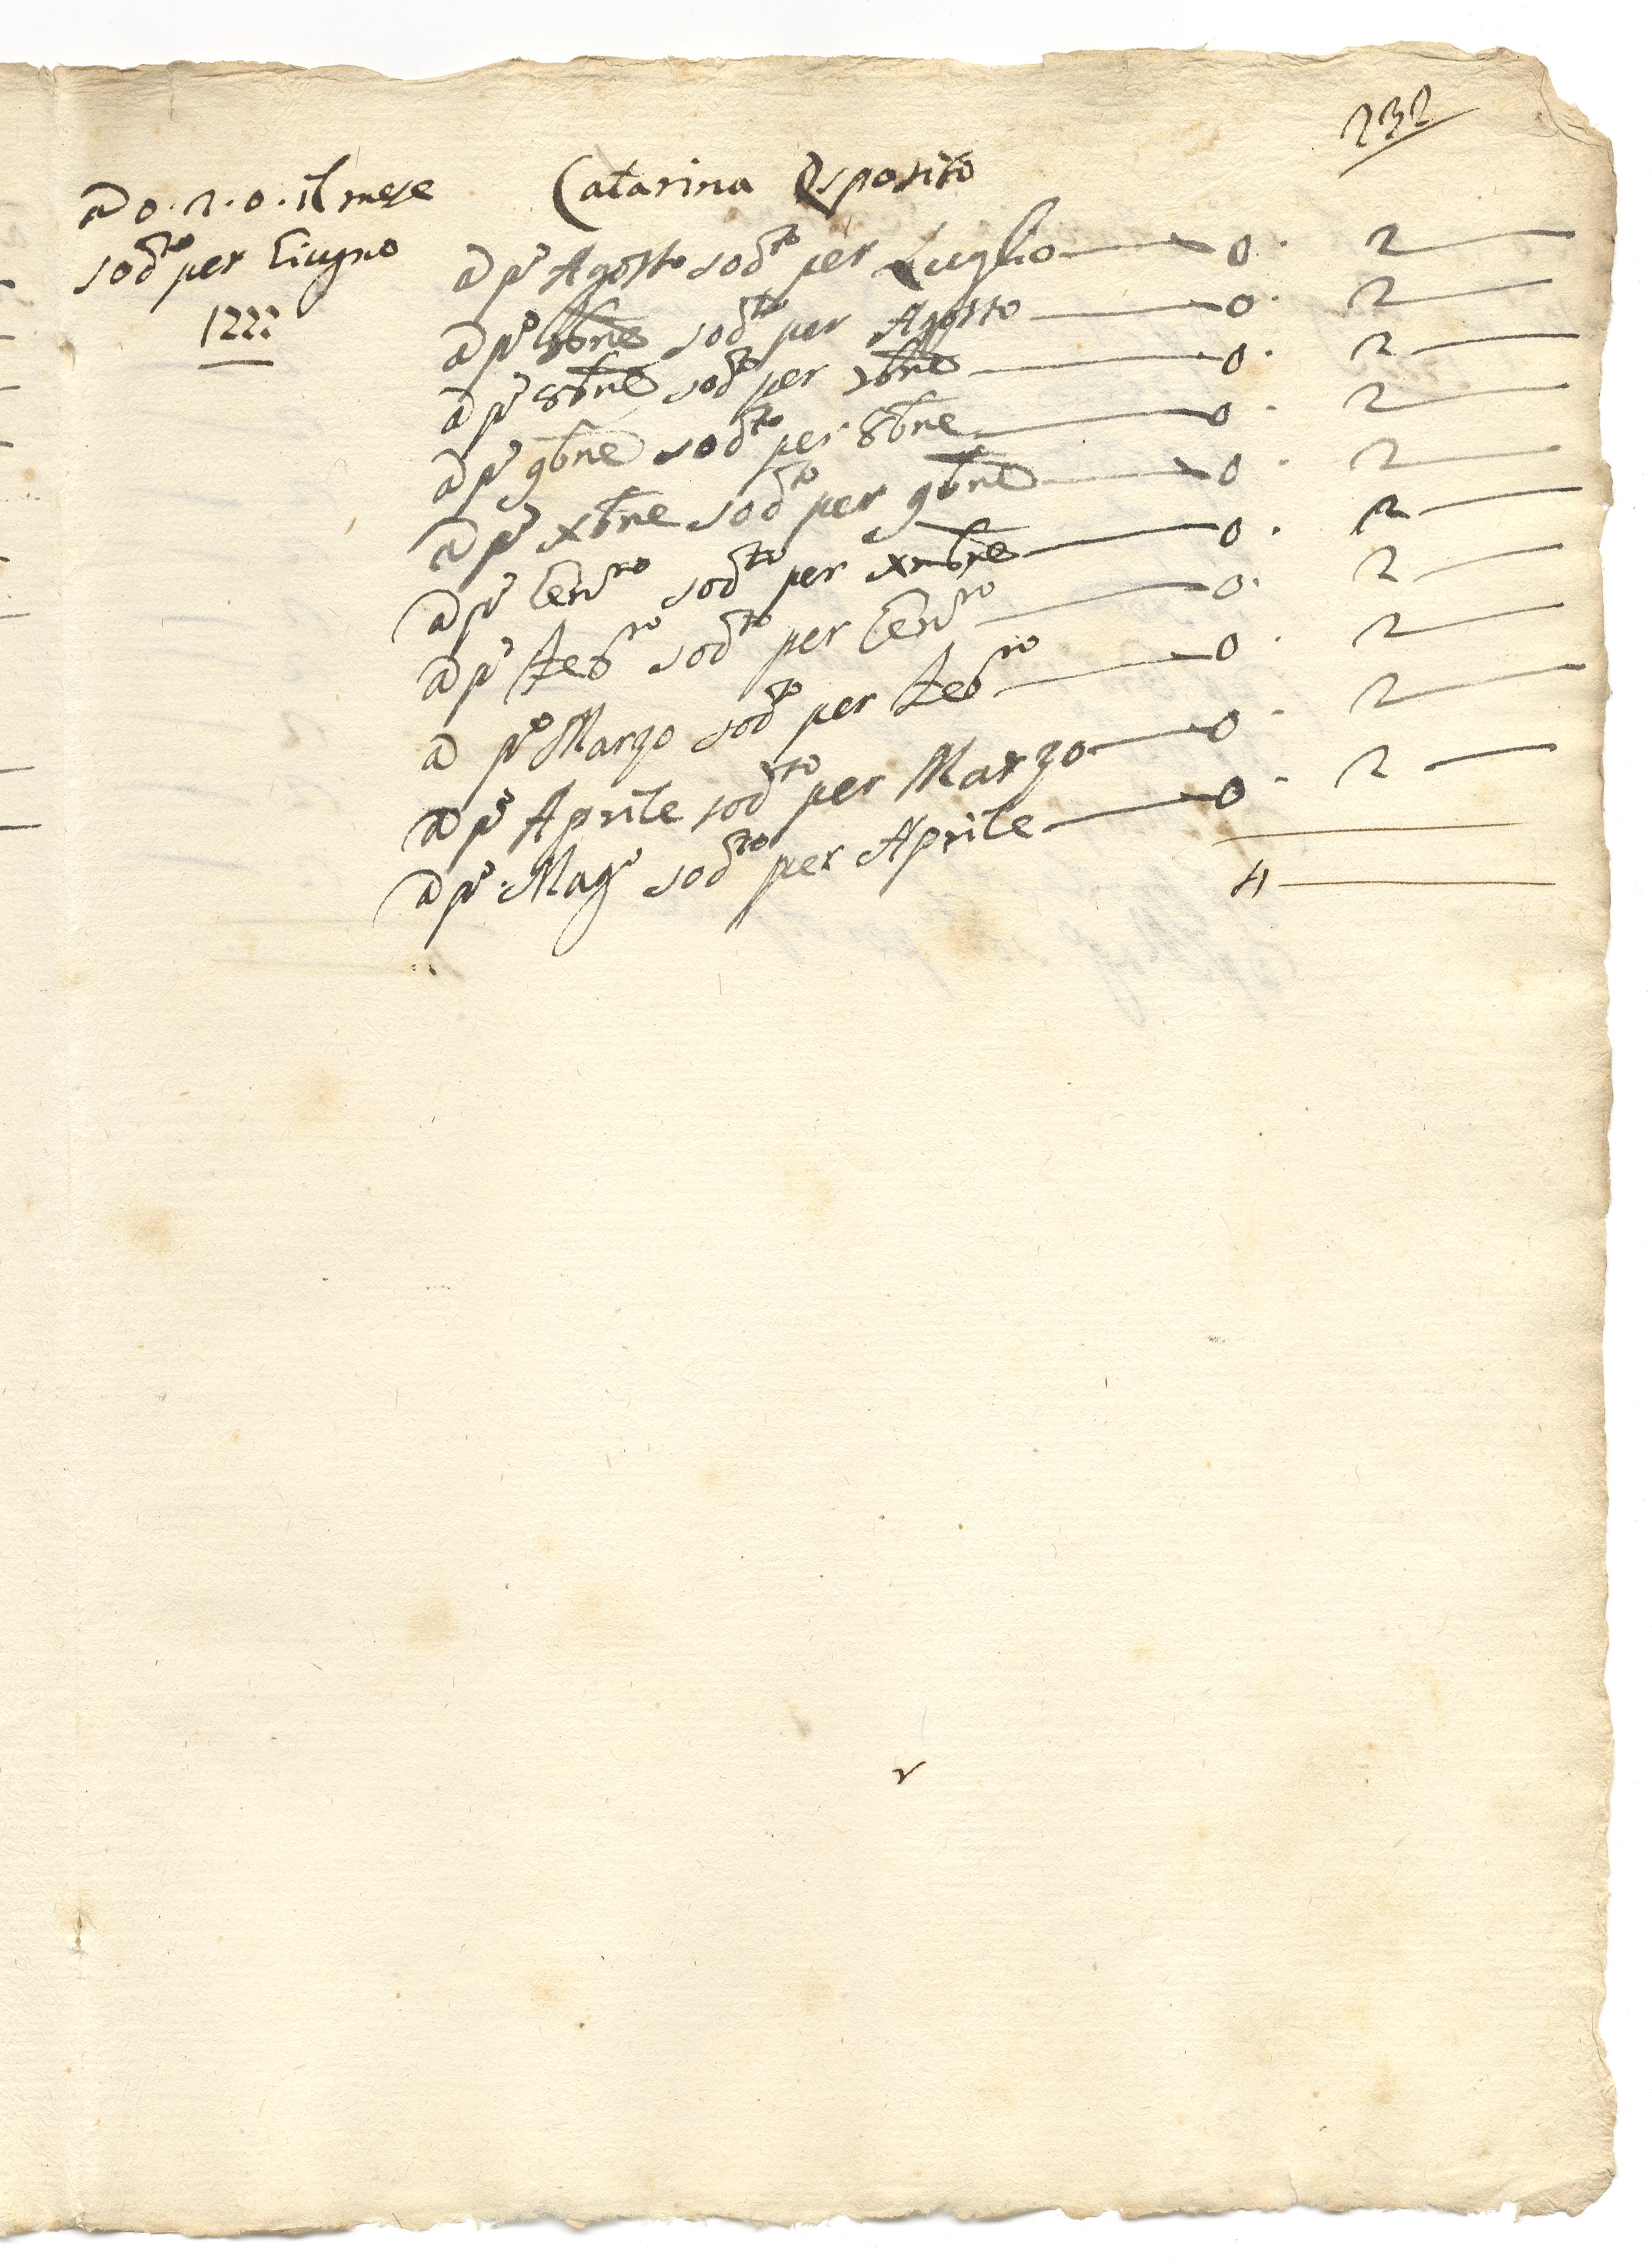 232
a 0.2.0. il mese
sod.to per Giugno
1777
Catarina Esposito
a p.o Agosto sod.to per Luglio — 0. 2 —
a p.o 7bre sod.to per Agosto — 0. 2 —
a p.o 8bre sod.to per 7bre — 0. 2 —
a p.o 9bre sod.to per 8bre — 0. 2 —
a p.o xbre sod.to per 9bre — 0. 2 —
a p.o Gen.ro sod.to per xmbre — 0. 2 —
a p.o Feb.ro sod.to per Gen.ro — 0. 2 —
a p.o Marzo sod.to per Feb.ro — 0. 2 —
a p.o Aprile sod.to per Marzo — 0. 2 —
a p.o Mag.o sod.to per Aprile — 0. 2 —
4 —